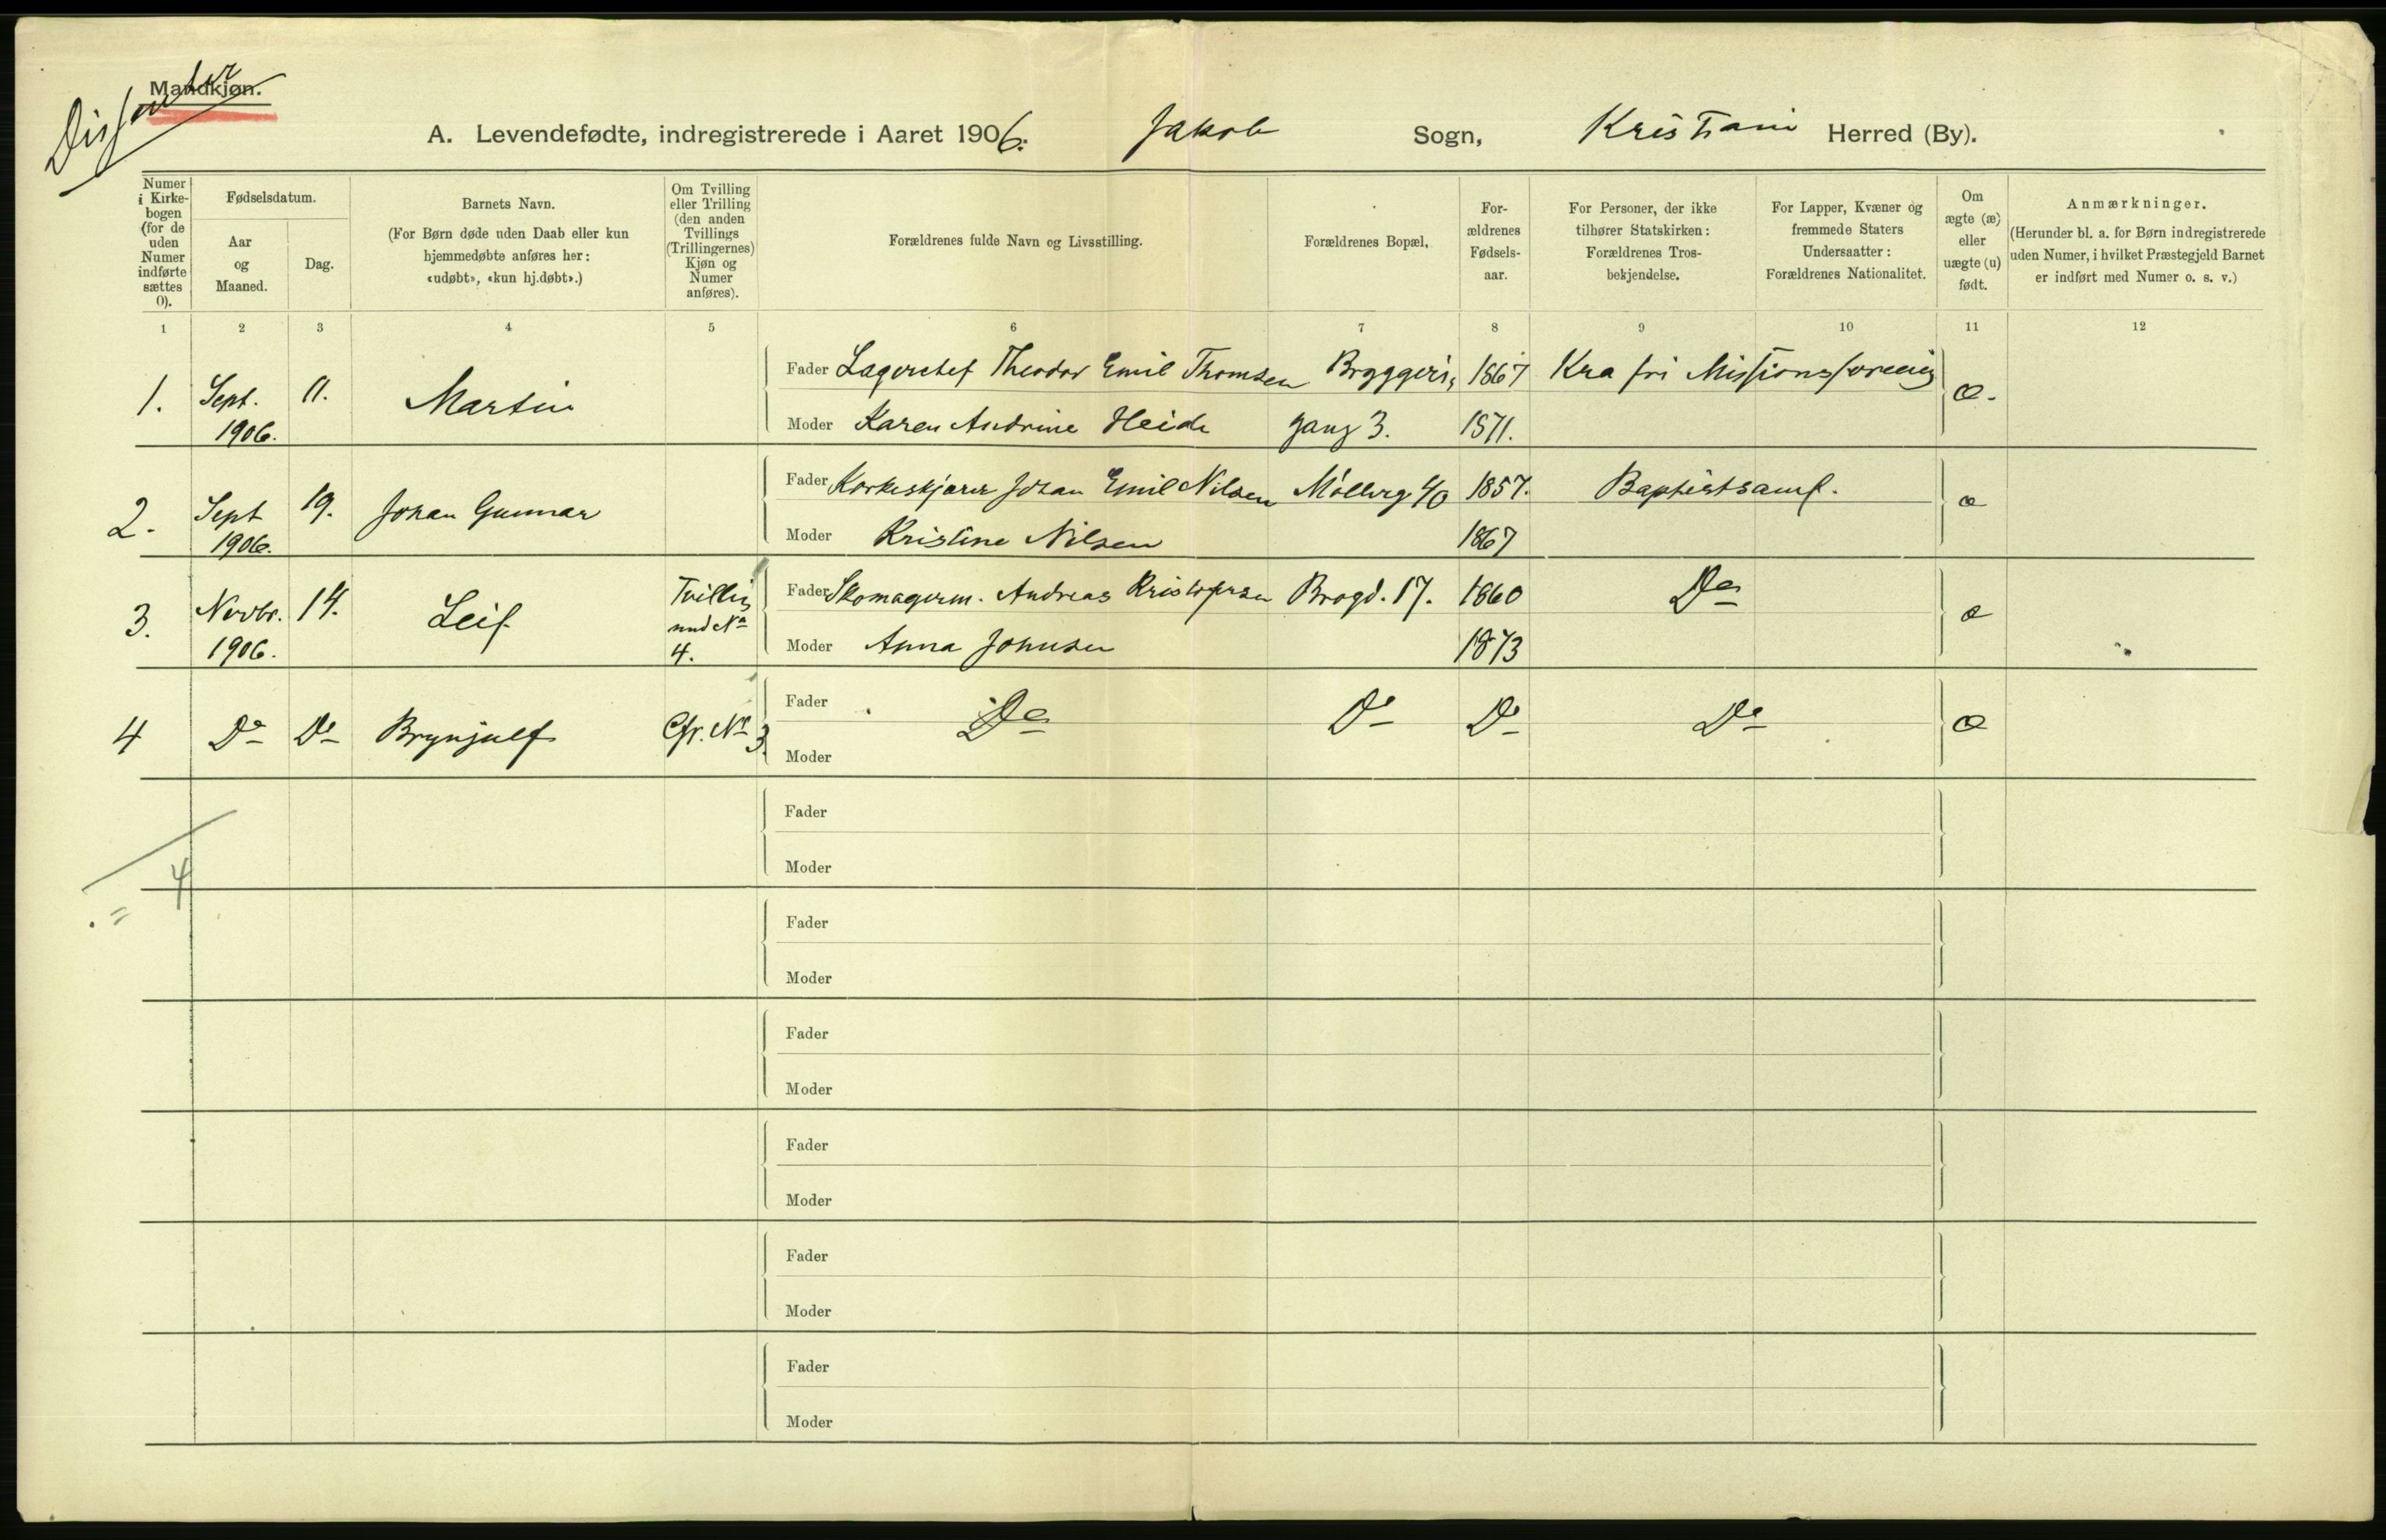 Dissenter
Mandkjøn.
A. Levendefødte, indregistrerede i Aaret 1906. Jakob Sogn, Kristiani Herred (By).
Numer i Kirkebogen (for de uden Numer indførte sættes 0).
Fødselsdatum.
Aar og Maaned.
Dag.
Barnets Navn.
(For Børn døde uden Daab eller kun hjemmedøbte anføres her: «udøbt», «kun hj.døbt».)
Om Tvilling eller Trilling (den anden Tvillings (Trillingernes) Kjøn og Numer anføres).
Forældrenes fulde Navn og Livsstilling.
Forældrenes Bopæl,
For-ældrenes Fødsels-aar.
For Personer, der ikke tilhører Statskirken: Forældrenes Tros-bekjendelse.
For Lapper, Kvæner og fremmede Staters Undersaatter: Forældrenes Nationalitet.
Om ægte (æ) eller uægte (u) født.
Anmærkninger.
(Herunder bl. a. for Børn indregistrerede uden Numer, i hvilket Præstegjeld Barnet er indført med Numer o. s. v.)
1 2 3 4 5 6 7 8 9 10 11 12
1. Sept. 11. Martin Fader Lagerchef Theodor Emil Thomsen Bryggeri, 1867 Kra fri Missionsforening æ.
1906. Moder Karen Andrine Heide gang 3. 1871.
2. Sept 19. Johan Gunnar Fader Korkeskjærer Johan Emil Nilsen Møllerg. 40 1857. Baptistsamf. æ
1906. Moder Kristine Nilsen 1867
3. Novbr. 14. Leif Tvilling Fader Skomagerm. Andreas Kristofersen Brogd. 17. 1860 Do æ
1906. med No 4. Moder Anna Johnsen 1873
4 Do Do Brynjulf Cfr. No 3. Fader Do Do Do Do æ
Moder
Fader
4
Moder
=
Fader
Moder
Fader
Moder
Fader
Moder
Fader
Moder
Fader
Moder